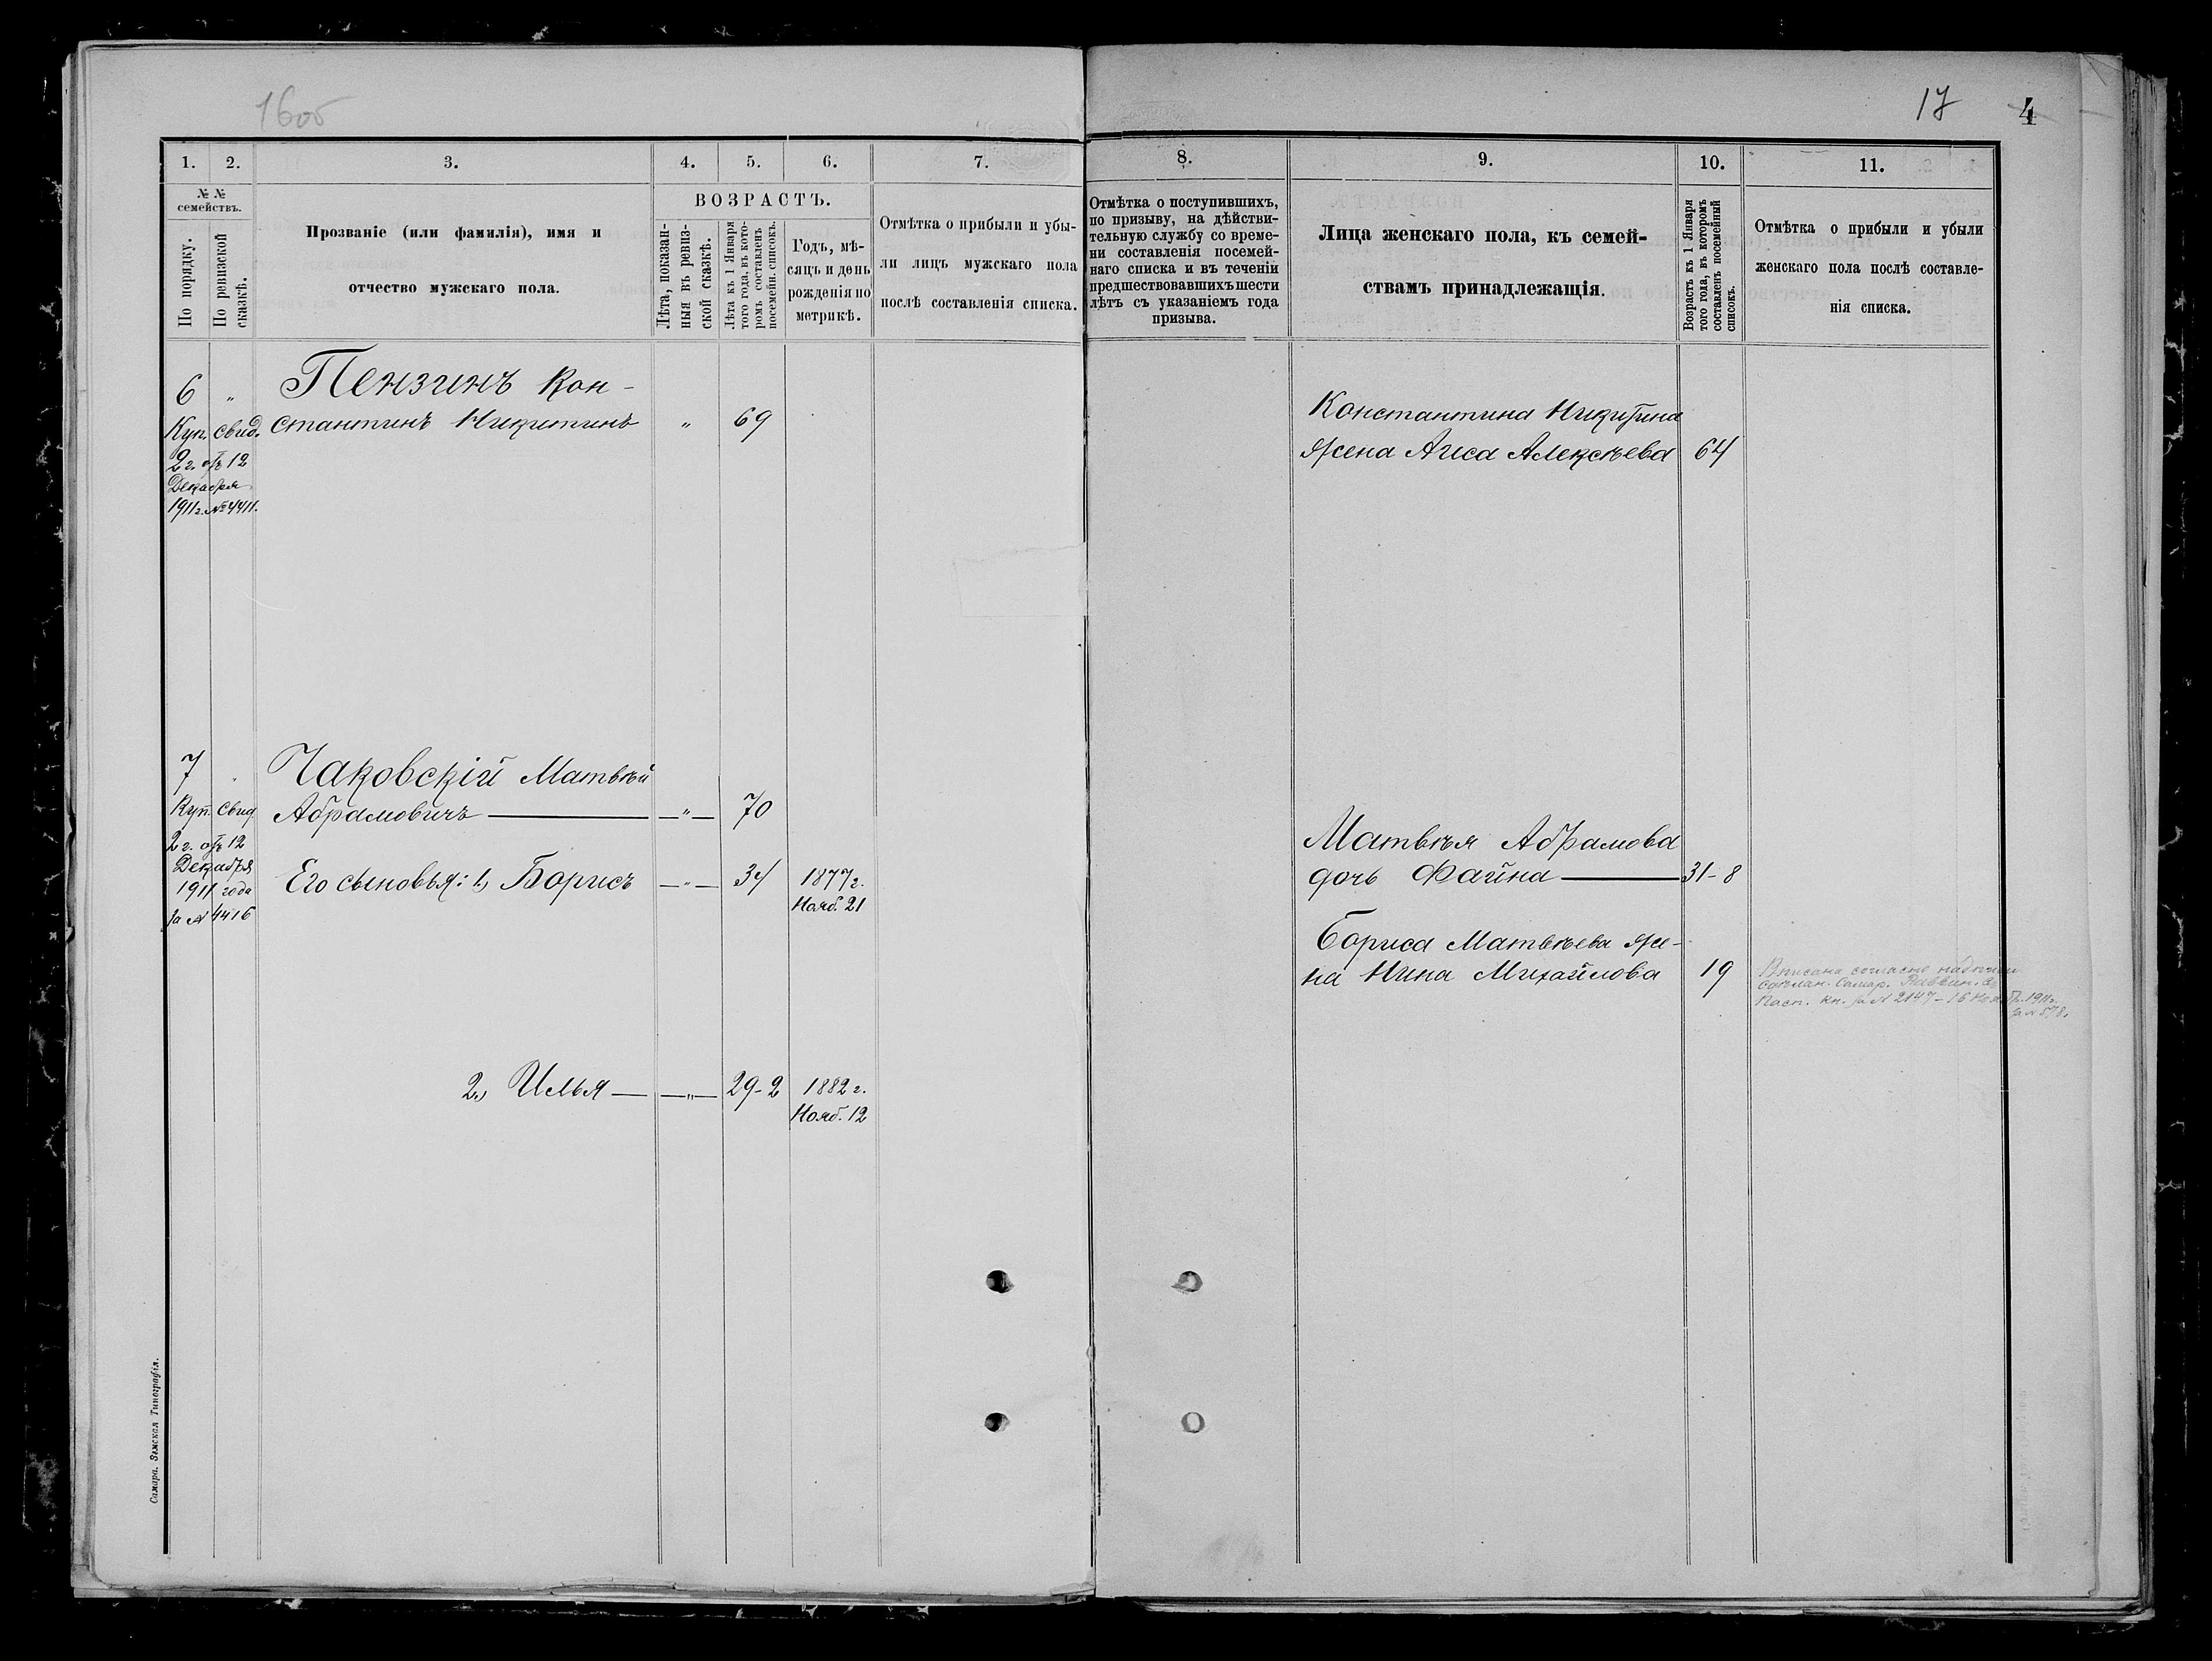 16об
17 4
1. 2. 3. 4. 5. 6. 7. 8. 9. 10. 11.
№ №
семействъ.
По порядку.
По ревизской
сказкѣ.
Прозваніе (или фамилія), имя и
отчество мужскаго пола.
ВОЗРАСТЪ.
Лѣта, показан-
ныя въ ревиз-
ской сказкѣ.
Лѣта къ 1 Января
того года, въ кото-
ромъ составленъ
посемейн. списокъ.
Годъ, мѣ-
сяцъ и день
рожденія по
метрикѣ.
Отмѣтка о прибыли и убы-
ли лицъ мужскаго пола
послѣ составленія списка.
Отмѣтка о поступившихъ,
по призыву, на дѣйстви-
тельную службу со време-
ни составленія посемей-
наго списка и въ теченіи
предшествовавшихъ шести
лѣтъ съ указаніемъ года
призыва.
Лица женскаго пола, къ семей-
ствамъ принадлежащія.
Возрастъ къ 1 Января
того года, въ которомъ
составленъ посемейный
списокъ.
Отмѣтка о прибыли и убыли
женскаго пола послѣ составле-
нія списка.
6 „ Пензинъ Кон-
стантинъ Никитинъ „ 69
Куп. свид.
2 г. отъ 12
Декабря
1911 г. № 4411.
Константина Никитина
жена Аиса Алексѣева 64
7 „ Чаковскій Матвѣй
Абрамовичъ — „ — 70
Куп. свид
2 г. отъ 12
Декабря
1911 года
за № 4416
Его сыновья: 1, Борисъ — „ — 34 1877 г.
Нояб. 21
Матвѣя Абрамова
дочь Файна — 31-8
Бориса Матвѣева же-
на Нина Михайлова 19
Вписана согласно надписи
сдѣлан. Самар. Раввин. въ
Пасп. кн. за № 2147 - 16 Нояб. 1911 г.
за № 578.
2, Илья — „ — 29-2 1882 г.
Нояб. 12
Самара. Земская Типографія.